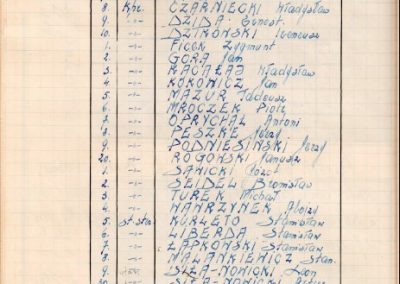 8. Kpr. CZARNIECKI Władysław
9. -"- DZIDA Ernest
10. -"- DZIKOŃSKI Ireneusz
1. -"- FICEK Zygmunt
2. -"- GÓRA Jan
3. -"- KACAŁAJ Władysław
4. -"- KOKOWICZ Jan
5. -"- MAZUR Tadeusz
6. -"- MROCZEK Piotr
7. -"- OPRYCHAŁ Antoni
8. -"- PESZKE
9. -"- PODNIESIŃSKI
20. -"- ROGOŃSKI Janusz
1. -"- SAWICKI Józef
2. -"- SEIDEL Bronisław
3. -"- TUREK Michał
4. -"- WAWRZYNEK Alojzy
5. st. KURLETO Stanisław
6. -"- LIBERDA Stanisław
7. -"- ŁAPKOWSKI Stanisław
8. -"- MALANKIEWICZ Stan.
9. ŚLZA-NOWICKI Leon